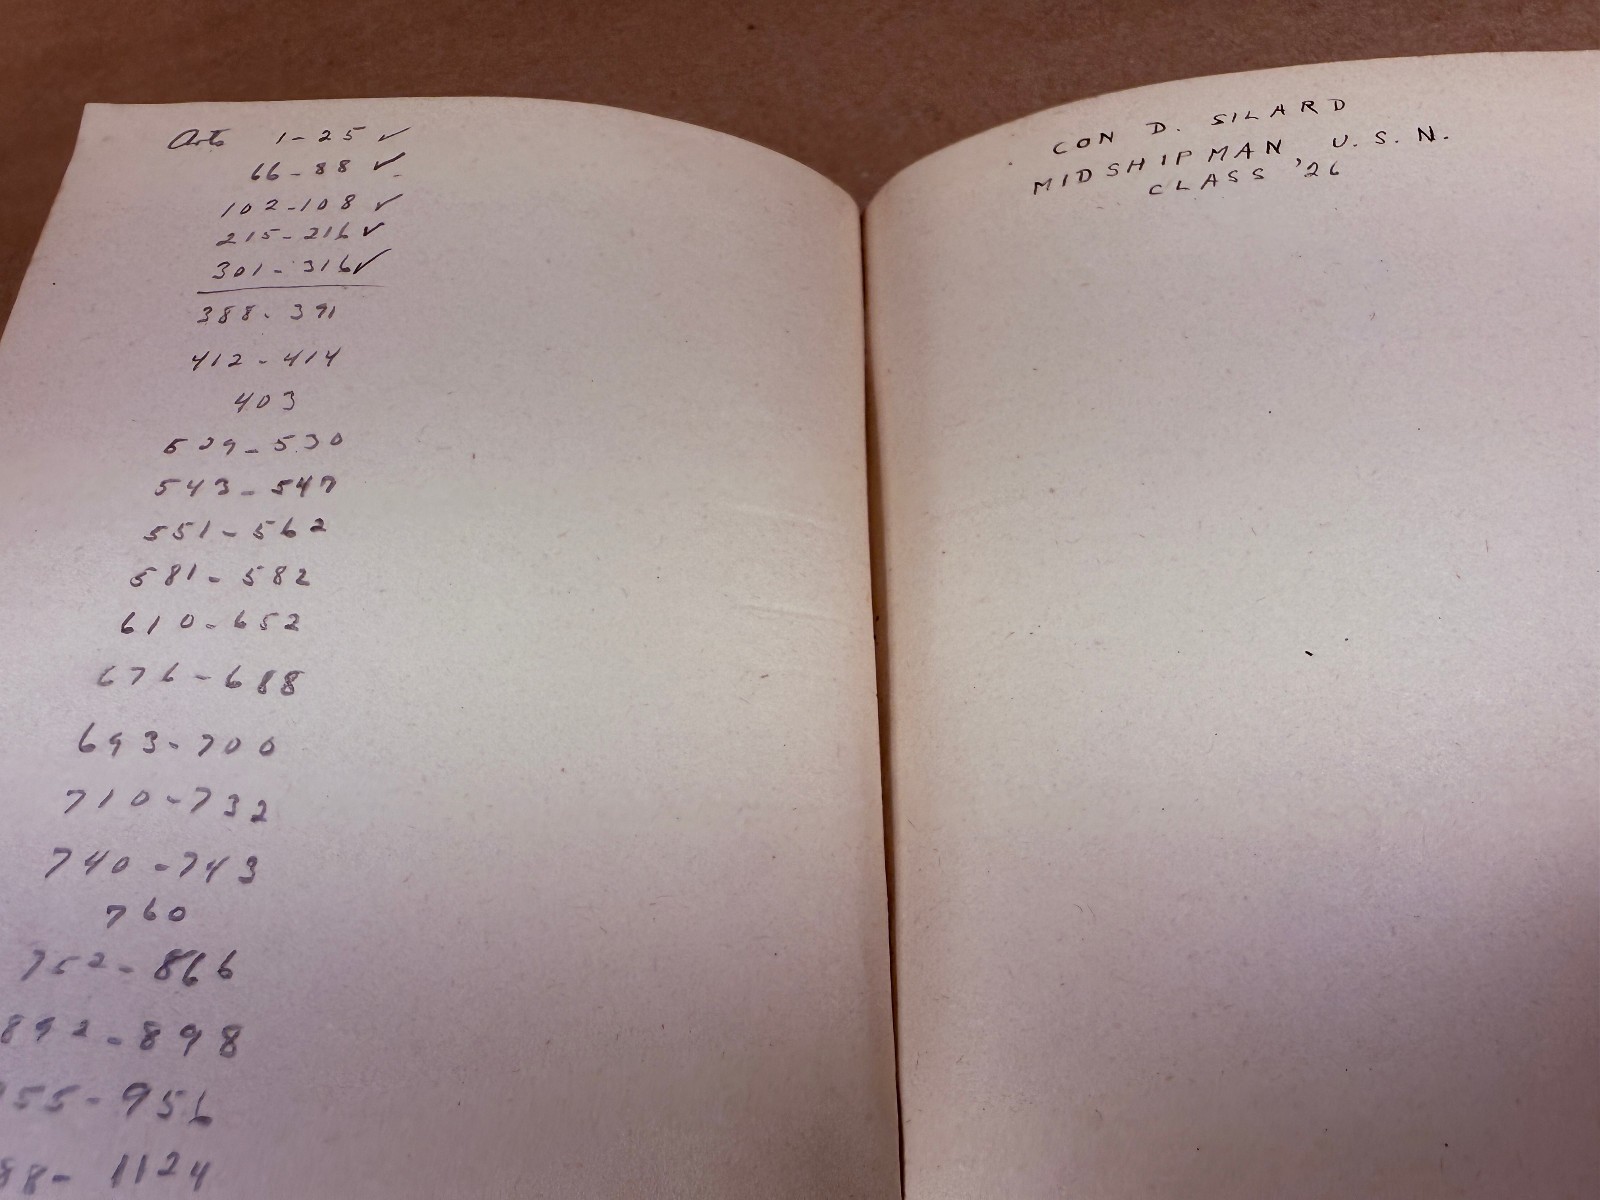 Arts 1-25 ✓
66-88 ✓
102-108 ✓
215-216 ✓
301-316 ✓
388-391
412-414
403
529-530
543-547
551-562
581-582
610-652
676-688
693-700
710-732
740-743
760
752-866
892-898
55-956
88-1124
CON D. SILARD
MIDSHIPMAN U.S.N.
CLASS '26